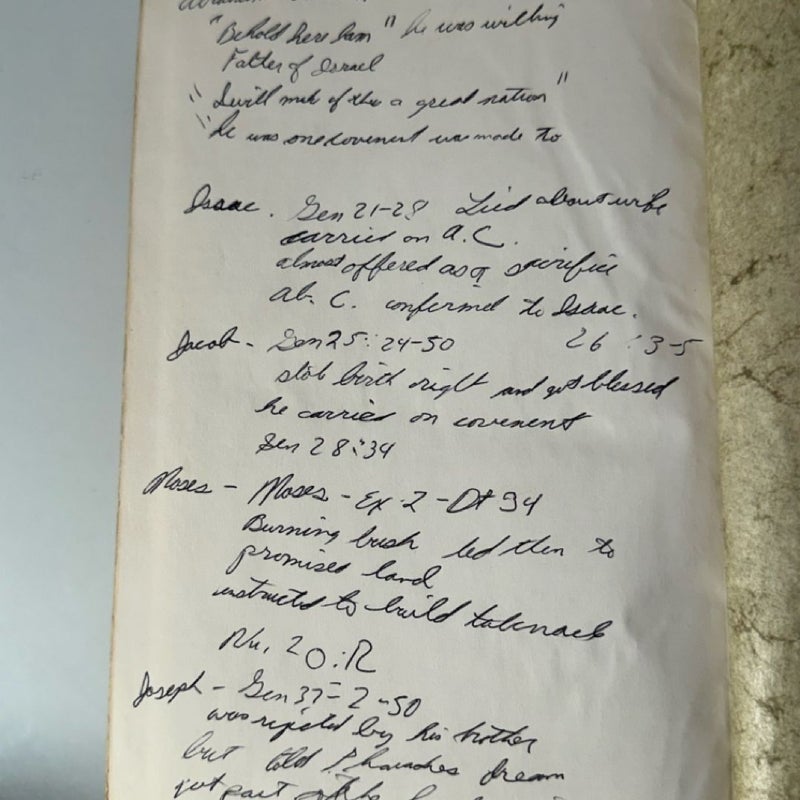 "Behold here I am" he was willing
Father of Israel
"I will mak of thee a great nation"
"he was one covenent was made to
Isaac. Gen 21-28 Lied about wife
carried on A.C.
almost offered as a sacrifice
Ab. C. confirmed to Isaac.
Jacob - Gen 25:24-50 26:3-5
stole birth right and got blessed
he carried on covenent
Gen 28:34
Moses - Moses - Ex 2 - Dt 34
Burning bush led then to
promised land
instructed to build tabernacle
Nu. 20:12
Joseph - Gen 37-2-50
was rejected by his brother
but told Pharaohes dream
got part of